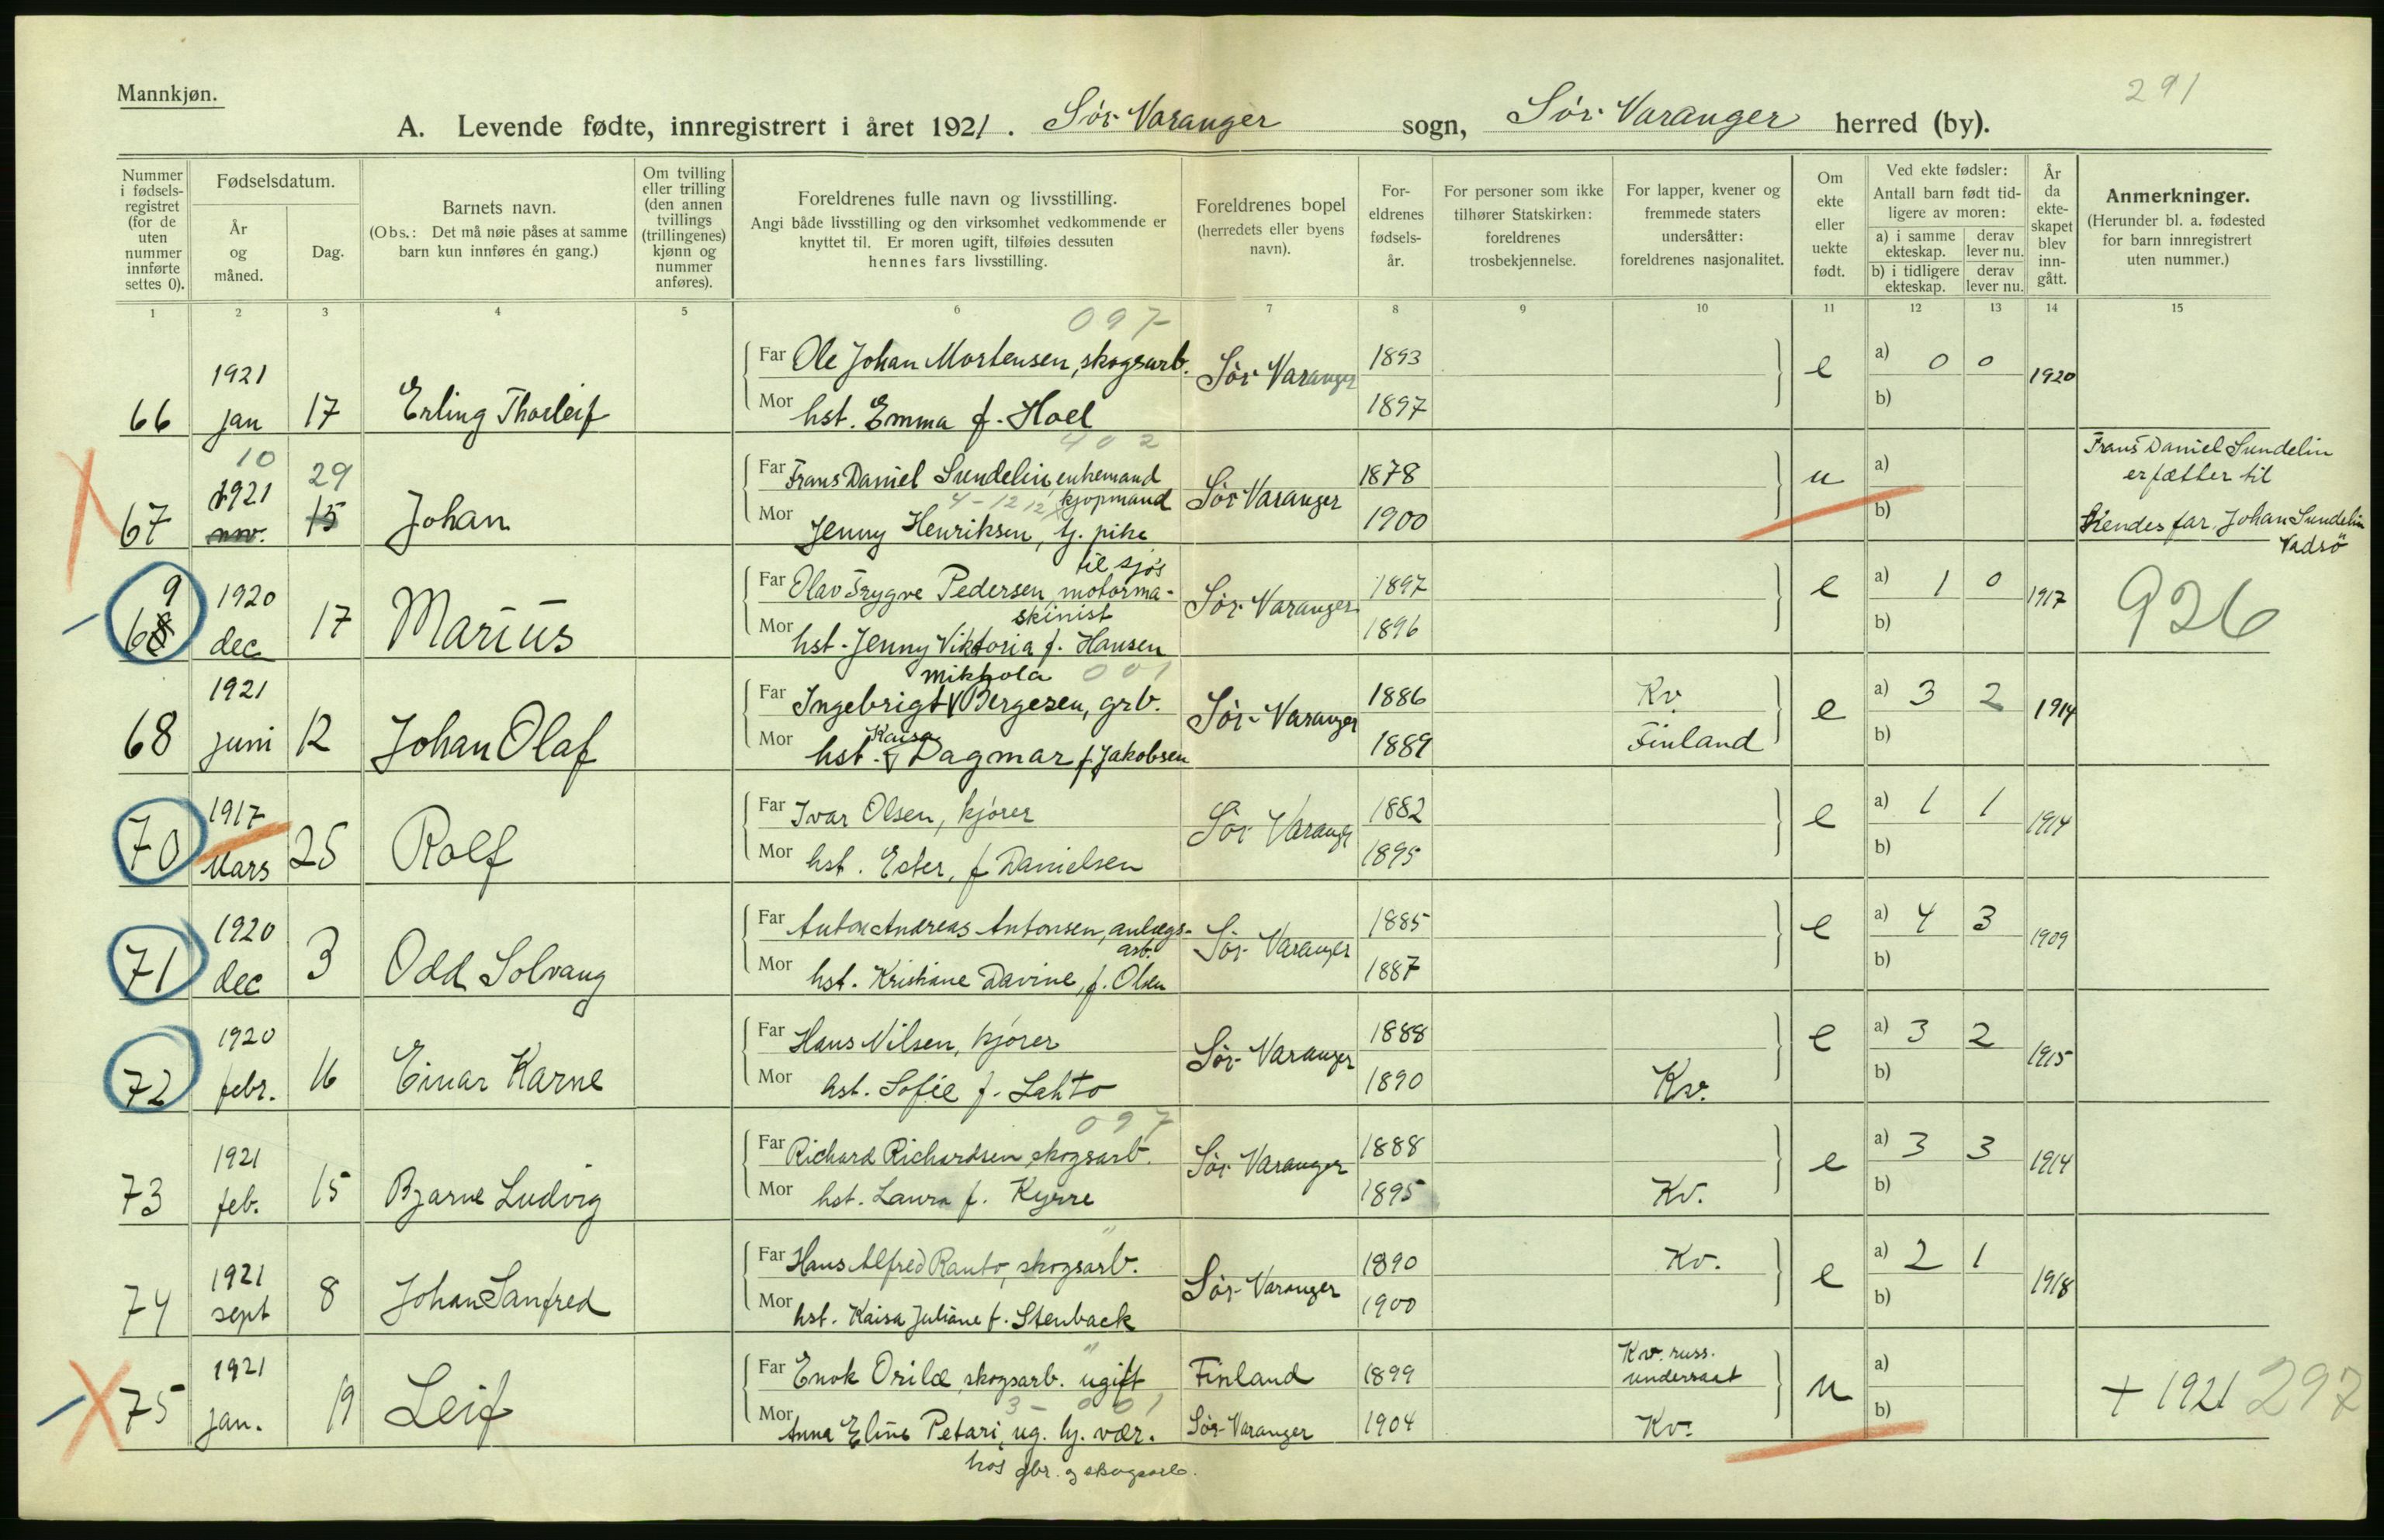 Mannkjøn.
291
A. Levende fødte, innregistrert i året 1921. Sør-Varanger sogn, Sør-Varanger herred (by).
Nummer i fødsels-registret (for de uten nummer innførte settes 0).
Fødselsdatum.
År og måned.
Dag.
Barnets navn.
(Obs.: Det må nøie påses at samme barn kun innføres én gang.)
Om tvilling eller trilling (den annen tvillings (trillingenes) kjønn og nummer anføres).
Foreldrenes fulle navn og livsstilling.
Angi både livsstilling og den virksomhet vedkommende er knyttet til. Er moren ugift, tilføies dessuten hennes fars livsstilling.
Foreldrenes bopel (herredets eller byens navn).
For-eldrenes fødsels-år.
For personer som ikke tilhører Statskirken: foreldrenes trosbekjennelse.
For lapper, kvener og fremmede staters undersåtter: foreldrenes nasjonalitet.
Om ekte eller uekte født.
Ved ekte fødsler:
Antall barn født tid-ligere av moren:
a) i samme ekteskap.
derav lever nu.
b) i tidligere ekteskap.
derav lever nu.
År da ekte-skapet blev inn-gått.
Anmerkninger.
(Herunder bl. a. fødested for barn innregistrert uten nummer.)
1 2 3 4 5 6 7 8 9 10 11 12 13 14 15
097
66 1921 jan 17 Erling Thorleif
Far Ole Johan Mortensen, skogsarb. Sør-Varanger 1893 e a) 0 0 1920
Mor hst. Emma f. Hoel 1897 b)
402
67 10 1921 nov. 29 15 Johan
Far Frans Daniel Sundelin, enkemand kjøpmand Sør-Varanger 1878 u a)
4-12 12
Mor Jenny Henriksen, tj. pike 1900 b)
Frans Daniel Sundelin
er fætter til
Hendes far. Johan Sundelin
Vadsö
69 1920 dec 17 Marius
Far Olav Trygve Pedersen, motorma-skinist til sjøs Sør-Varanger 1897 e a) 1 0 1917 926
Mor hst. Jenny Viktoria f. Hansen 1896 b)
Mikkola 001
68 1921 juni 12 Johan Olaf
Far Ingebrigt Bergesen, grb. Sør-Varanger 1886 Kv. e a) 3 2 1914
Mor hst. Kaisa Dagmar f. Jakobsen 1889 Finland b)
70 1917 Mars 25 Rolf
Far Ivar Olsen, kjører Sør-Varanger 1882 e a) 1 1 1914
Mor hst. Ester, f. Danielsen 1895 b)
71 1920 dec 3 Odd Solvang
Far Anton Andreas Antonsen, anlægs-arb. Sør-Varanger 1885 e a) 4 3 1909
Mor hst. Kristiane Davine, f. Olsen 1887 b)
72 1920 febr. 16 Einar Karne
Far Hans Nilsen, kjører Sør-Varanger 1888 e a) 3 2 1915
Mor hst. Sofie f. Lahto 1890 Kv. b)
097
73 1921 feb. 15 Bjarne Ludvig
Far Richard Richardsen, skogsarb. Sør-Varanger 1888 e a) 3 3 1914
Mor hst. Laura f. Kyrre 1895 Kv. b)
"
74 1921 sept 8 Johan Sanfred
Far Hans Alfred Ranto, skogsarb. Sør-Varanger 1890 Kv. e a) 2 1 1918
Mor hst. Kaisa Juliane f. Stenback 1900 b)
"
75 1921 jan. 19 Leif
Far Enok Orilæ, skogsarb. ugift Finland 1899 Kv. russ. undersaat u a) + 1921 297
3-001
Mor Anna Eline Petari, ug. hj. vær. Sør-Varanger 1904 Kv. b)
hos gbr. og skogsarb.